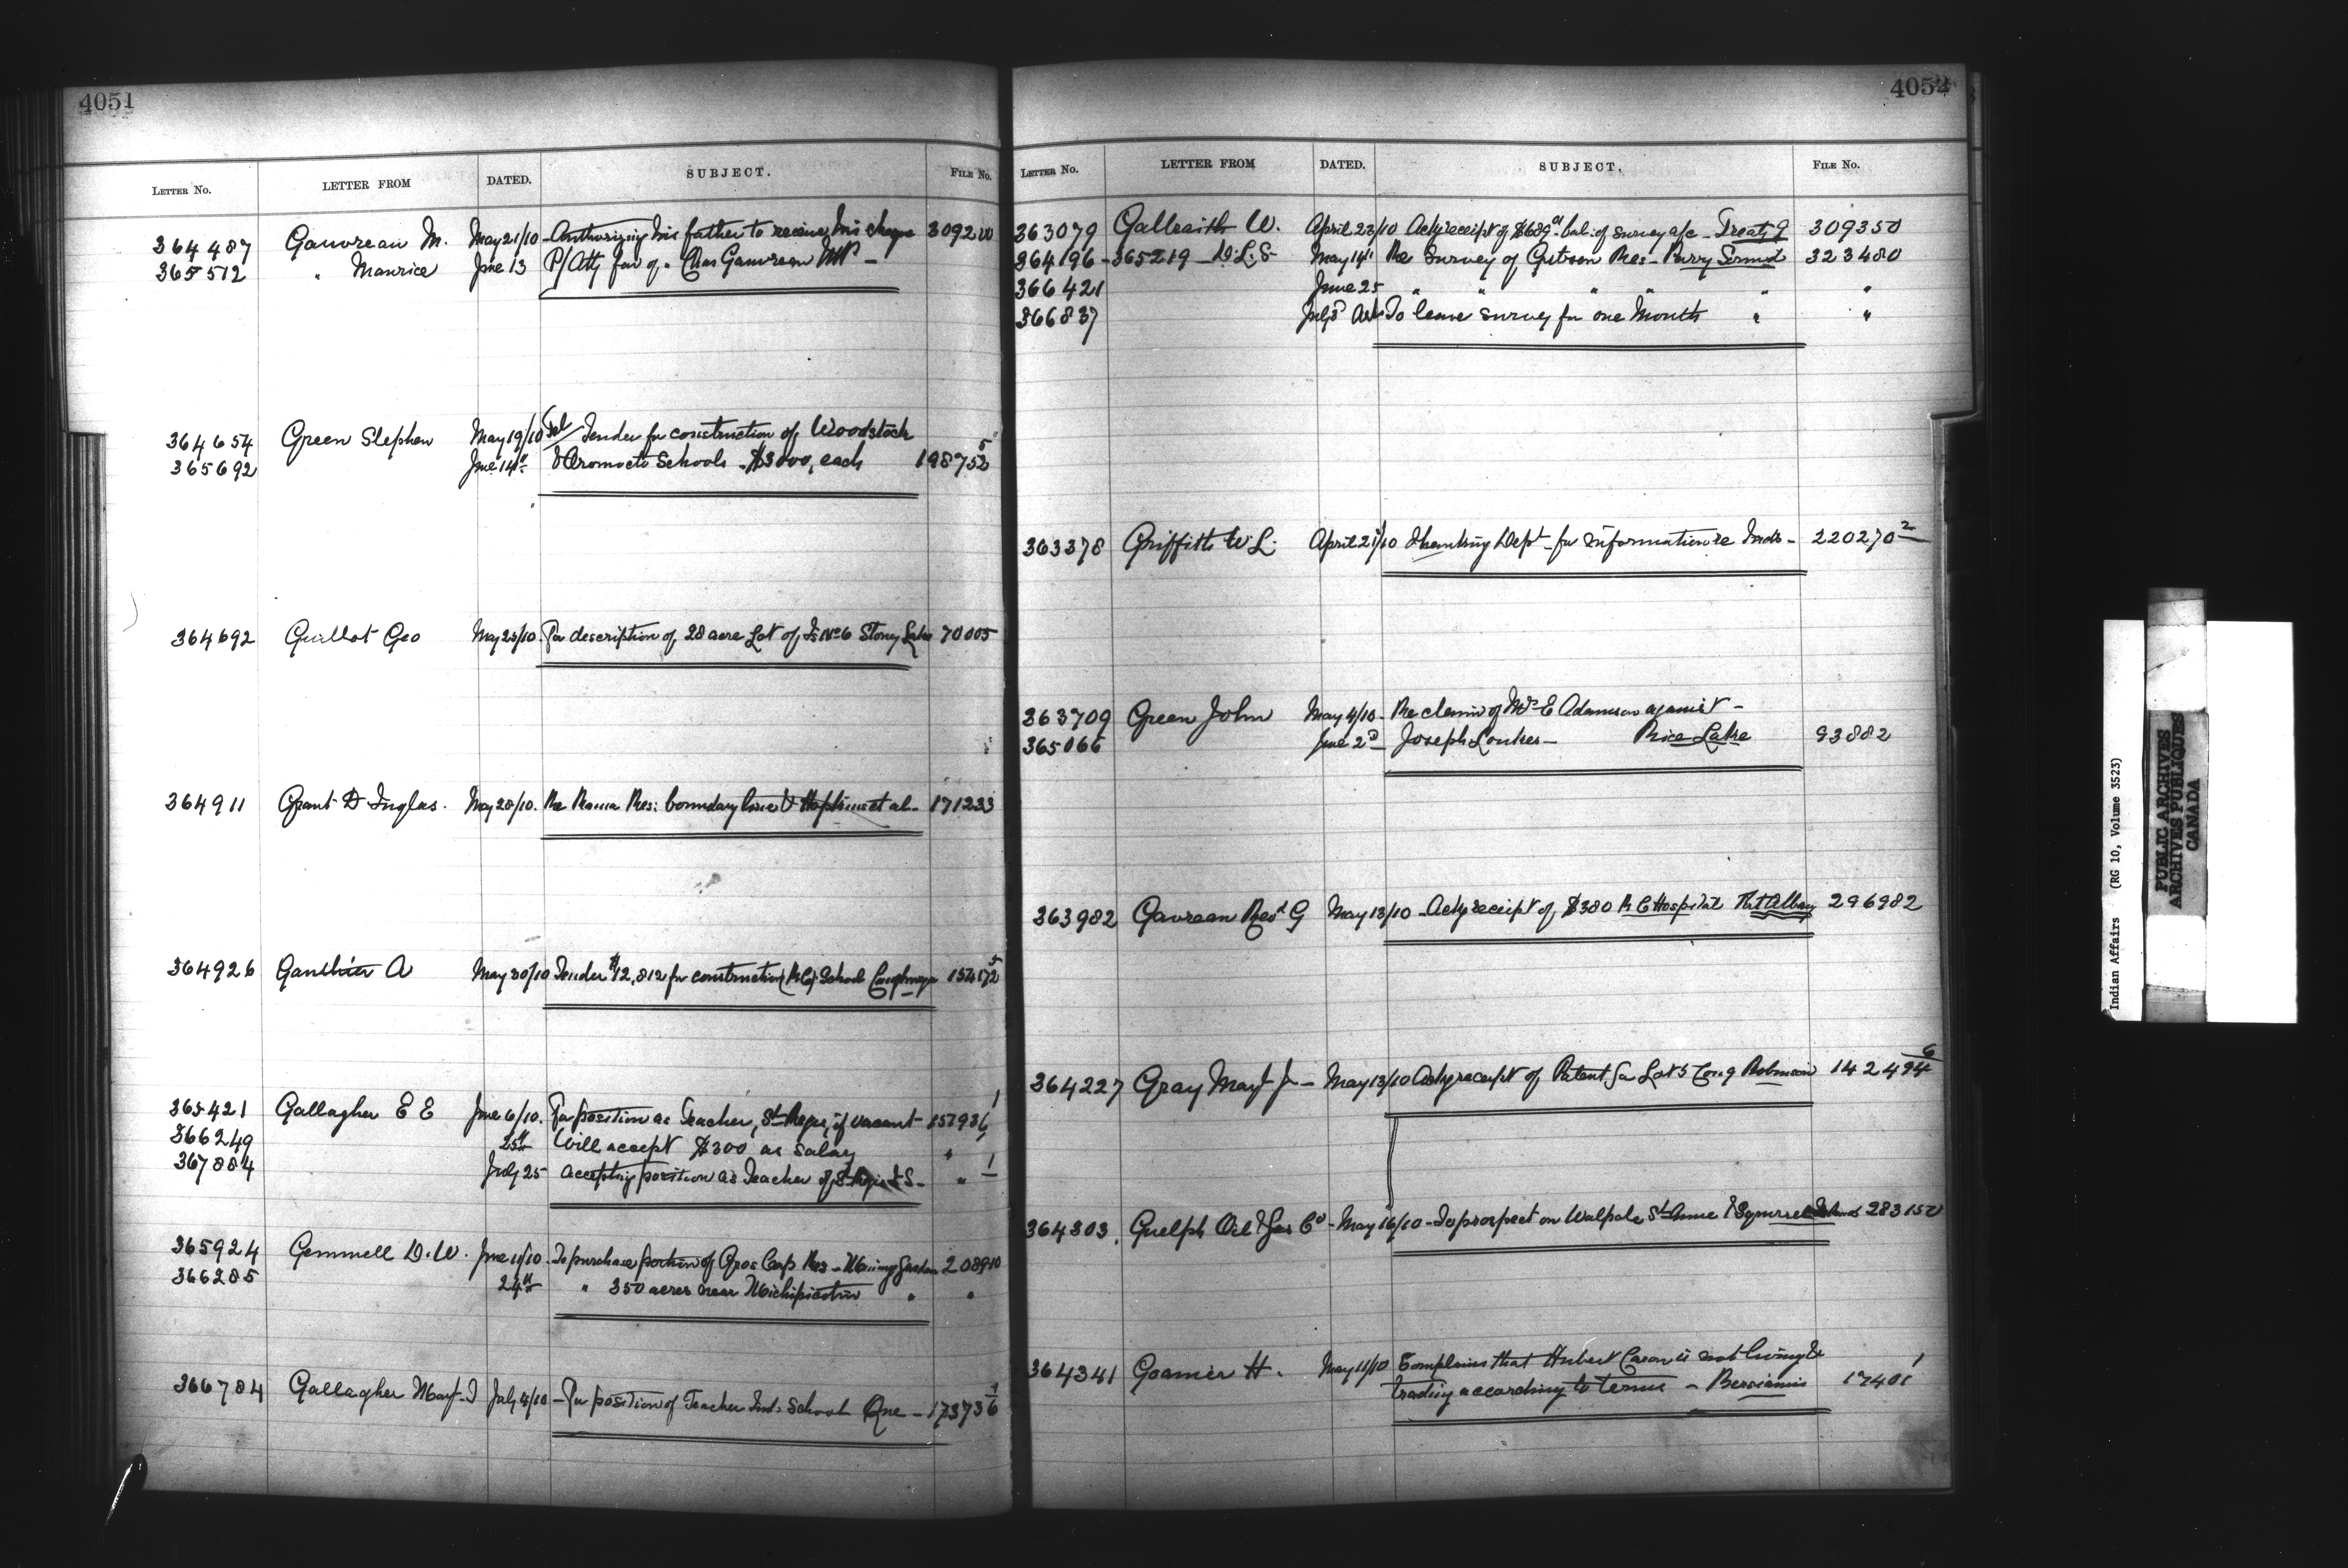 4051
LETTER No. LETTER FROM DATED. SUBJECT. FILE No.
364487 Gauvreau M. May 21/10 Authorizing his father to receive his cheque 309200
365512 " Maurice June 13 P/Atty fav of " Chas Gauvreau MP -
364654 Green Stephen May 19/10 Tel Tender for construction of Woodstock
365692 June 14th & Oromocto Schools - $3000, each 198752 5
364692 Guillot Geo May 23/10. For description of 28 acre Lot of Is No 6 Stoney Lake 70005
364911 Grant D Inglas. May 28/10. Re Rama Res: boundary line & Hopkins et al - 171233
364926 Gauthier A May 30/10 Tender $12,812 for construction (R.C.) School Caughnaga 154172 5
365421 Gallagher E E June 6/10. For position as Teacher, St Regis, if vacant - 157936 1
366249 25th Will accept $300 as salary " 1
367884 July 25 accepting position as Teacher of St Regis I S - " 1
365924 Gemmell D. W. June 11/10. To purchase portion of Gros Cap Res - Mining Garden 208910
366285 24th " 350 acres near Michipicoten " "
366784 Gallagher Mary J July 4/10 - For position of Teacher Ind: School Que - 173736 1
4052
LETTER No. LETTER FROM DATED. SUBJECT. FILE No.
363079 Galbraith W. April 23/10 Ackg receipt of $689. bal: of survey a/c - Treaty 9 309350
364196 - 365219 - D.L.S May 14" Re Survey of Gibson Res - Parry Sound 323480
366421 June 25 " " " " " "
366837 July 3 Ask To leave survey for one Month " "
363378 Griffith W L. April 21/10 Thanking Dept - for information re Inds - 220270 2
363709 Green John May 4/10 - Re claim of Mrs E Adamson against -
365066 June 2d Joseph Loukes - Rice Lake 93882
363982 Gavreau Revd G May 13/10 - Ackg receipt of $380 R C Hospital Fort Albany 296982
364227 Gray Mary J - May 13/10 Ackg receipt of Patent for Lot 5 Con 9 Robinson 142494 6
364303. Guelph Oil & Gas Co - May 16/10 - To prospect on Walpole St Anne & Squirrel Islands 283150
364341 Goamier H. May 11/10 Complains that Hubert Caron is not living &
trading according to terms - Bersiamis 17401 1
Indian Affairs (RG 10, Volume 3523)
PUBLIC ARCHIVES
ARCHIVES PUBLIQUES
CANADA